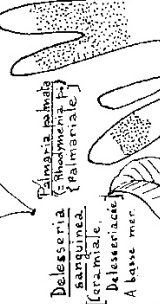 Palmaria palmata
(= Rhodymenia p.)
[Palmariale]
Delesseria
sanguinea
[Ceramiale.
Delesseriacée]
A basse mer.